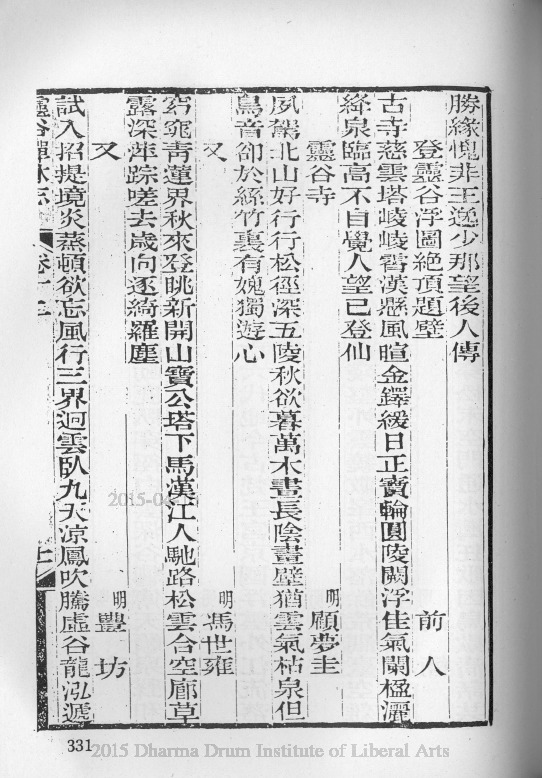 勝緣愧非王逸少那望後人傳
登靈谷浮圖絕頂題壁 前人
古寺慈雲塔崚崚霄漢懸風暄金鐸緩日正寶輪圓陵闕浮佳氣闌楹灑
絳泉臨高不自覺人望已登仙
靈谷寺 明 顧夢圭
夙駕北山好行行松徑深五陵秋欲暮萬木晝長陰畫壁猶雲氣枯泉但
鳥音卻於絲竹裏有媿獨遊心
又 明 馮世雍
窈窕青蓮界秋來登眺新開山寶公塔下馬漢江人馳路松雲合空廊草
露深萍踪嗟去歲向逐綺羅塵
又 明 豐坊
試入招提境炎蒸頓欲忘風行三界迥雲臥九天涼鳳吹騰虛谷龍泓遞
靈谷禪林志 卷十三 十一
331
2015 Dharma Drum Institute of Liberal Arts